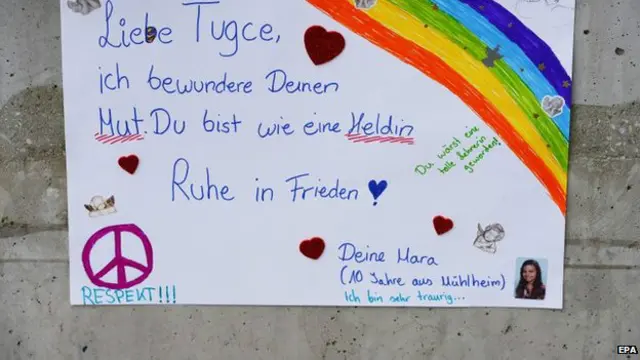 Liebe Tugce,
ich bewundere Deinen
Mut. Du bist wie eine Heldin
Du wärst eine
tolle Lehrerin
geworden!
Ruhe in Frieden!
Deine Mara
(10 Jahre aus Mühlheim)
Ich bin sehr traurig...
RESPEKT!!!
EPA